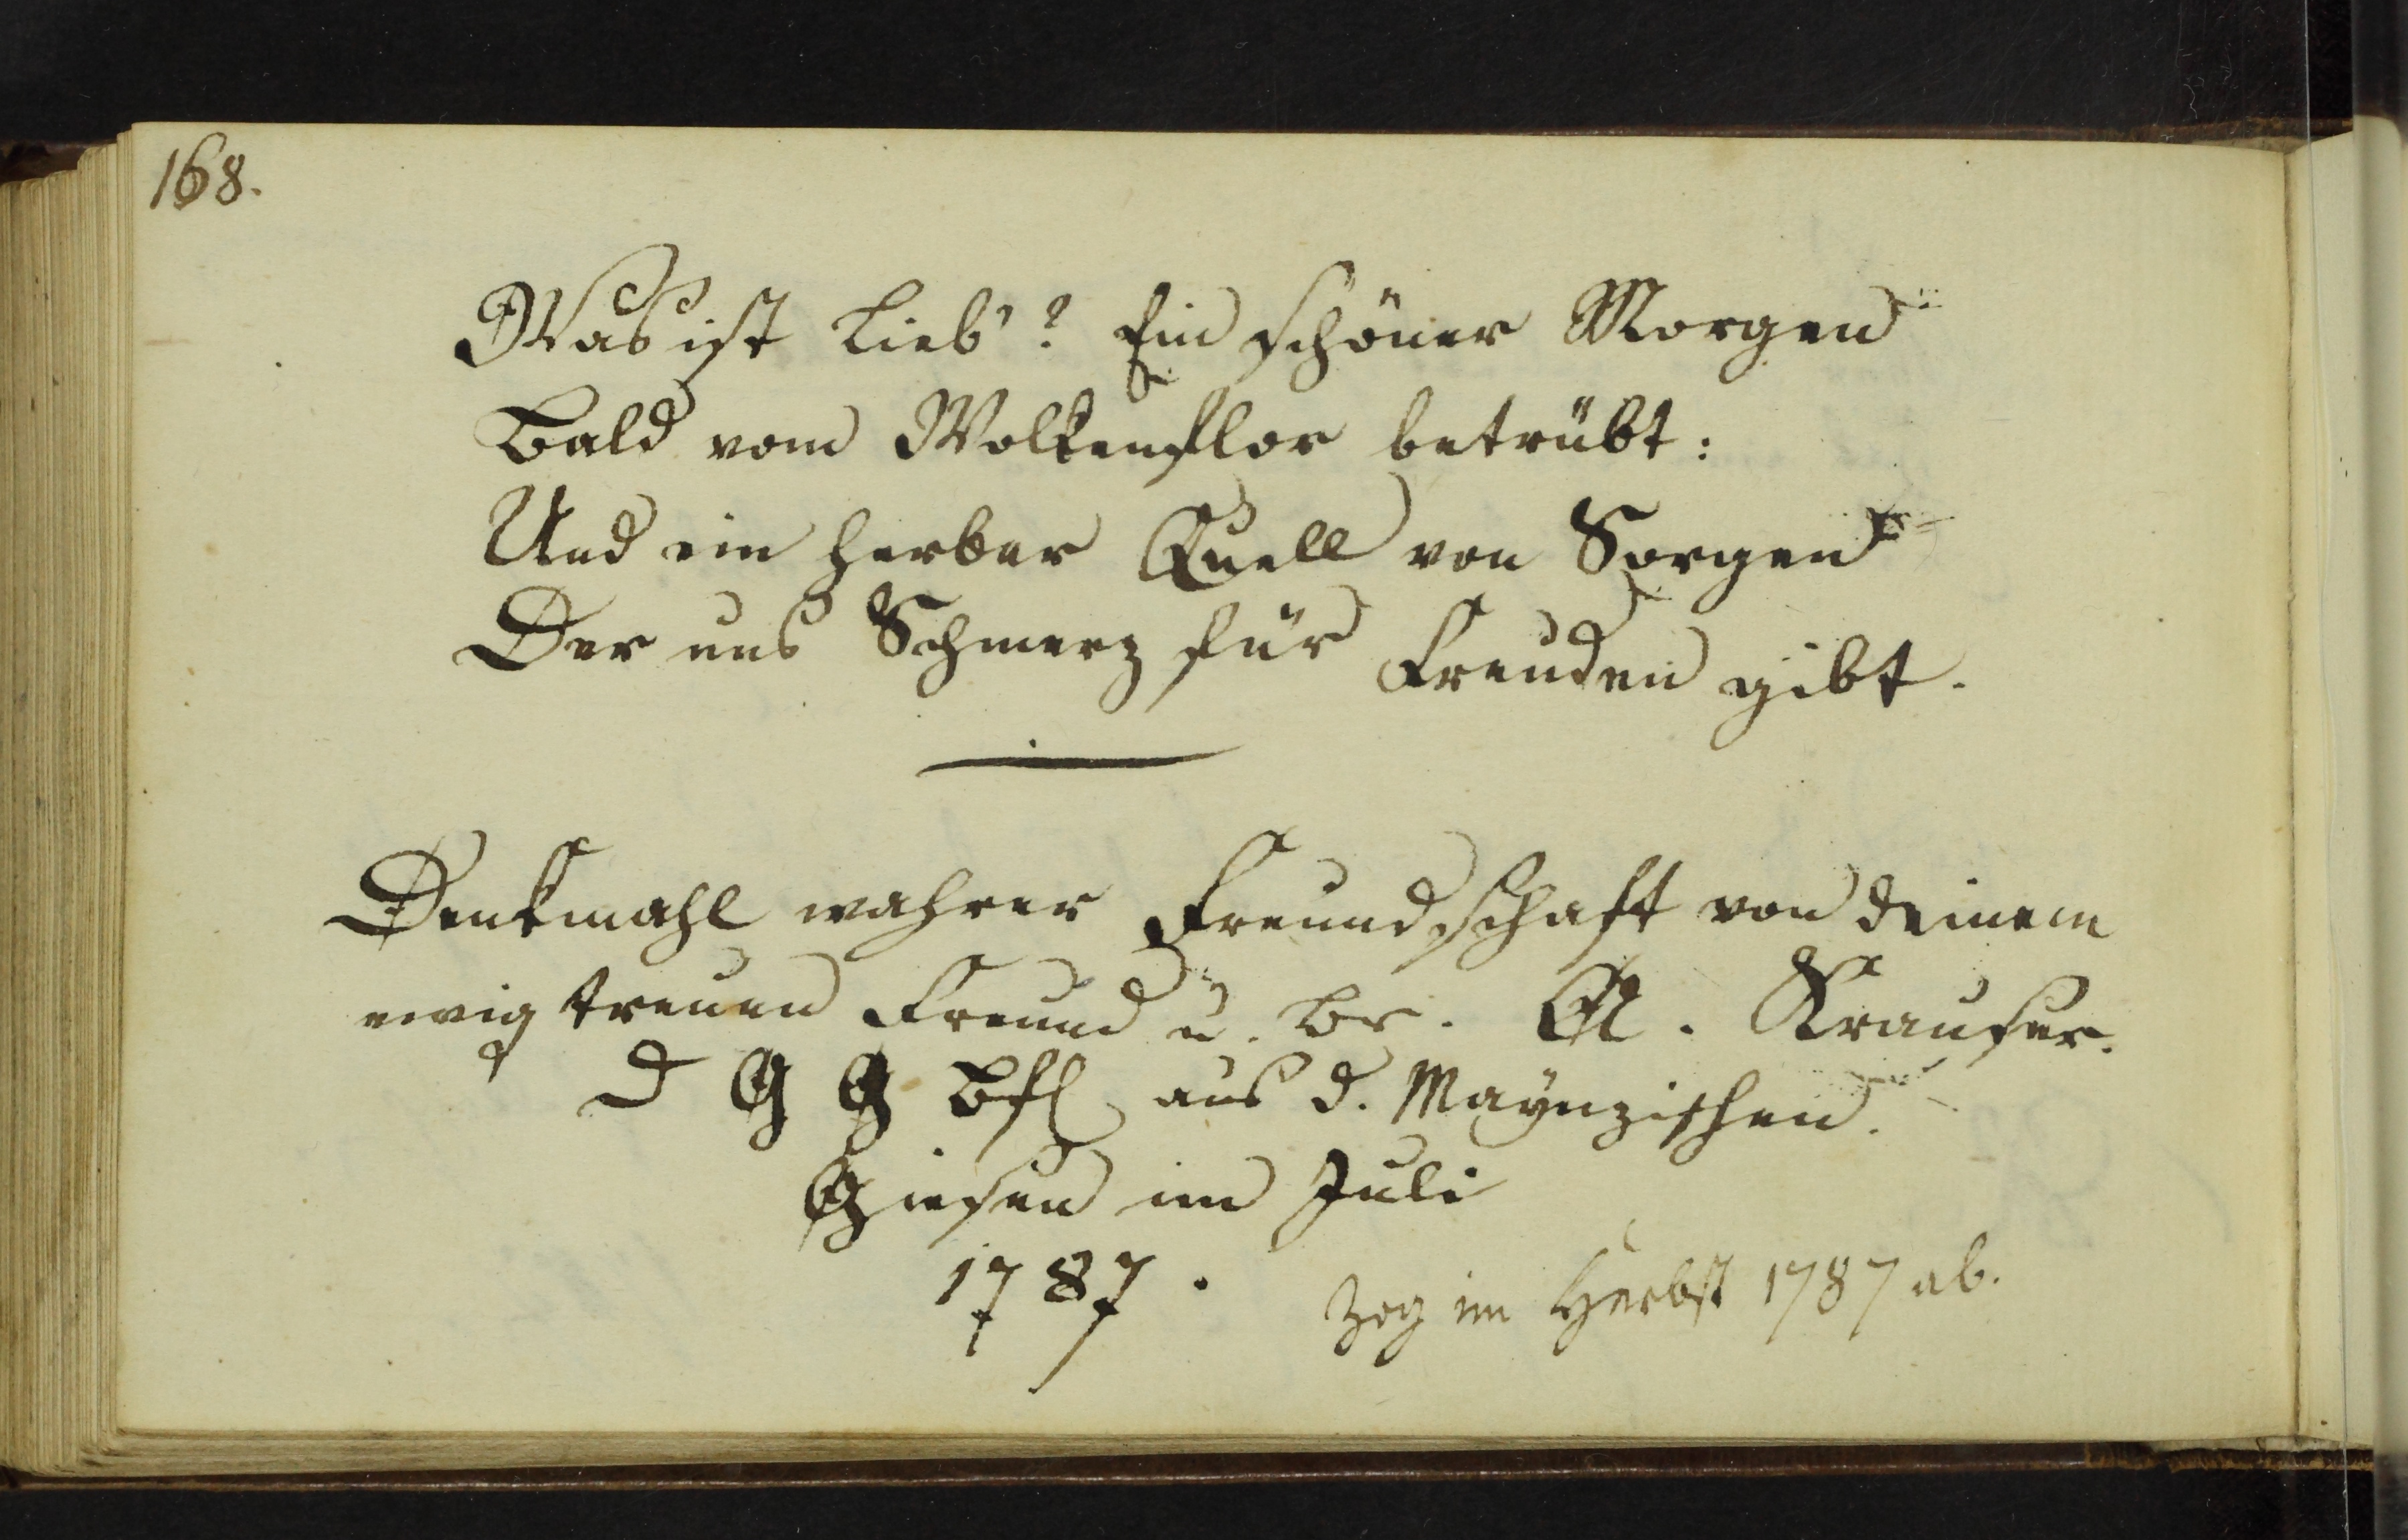 168.
Was ist Lieb'? Ein schöner Morgen
Bald vom Wolkenflor betrübt:
Und ein herber Quell von Sorgen
Der uns Schmerz für Freuden gibt.
Denkmahl wahrer Freundschaft von deinem
ewig treuen Freund u. Br. A. Krauser.
D G G Bfl aus d. Maynzischen.
Giesen im Juli
1787.
Zog im Herbst 1787 ab.